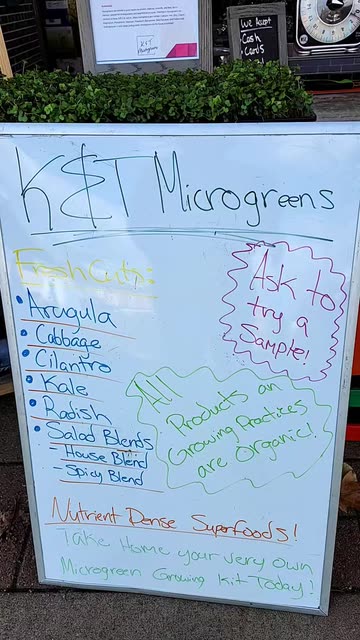 We accept
Cash
Cards
K&T Microgreens
Fresh Cuts:
Ask to
try a
Sample!
• Arugula
• Cabbage
• Cilantro
• Kale
• Radish
• Salad Blends
- House Blend
- Spicy Blend
All
Products an
Growing Practices
are Organic!
Nutrient Dense Superfoods!
Take Home your very own
Microgreen Growing Kit Today!